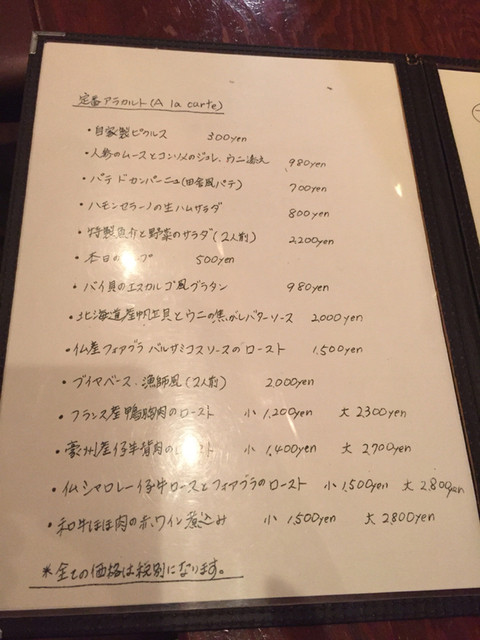 定番アラカルト(A la carte)
・自家製ピクルス 300yen
・人参のムースとコンソメのジュレ、ウニ添え 980yen
・パテ ド カンパーニュ(田舎風パテ) 700yen
・ハモンセラーノの生ハムサラダ 800yen
・特製魚介と野菜のサラダ(2人前) 2,200yen
・本日の 500yen
・バイ貝のエスカルゴ風グラタン 980yen
・北海道産帆立貝とウニの焦がしバターソース 2,000yen
・仏産フォアグラ バルサミコスソースのロースト 1,500yen
・ブイヤベース、漁師風(2人前) 2,000yen
・フランス産鴨胸肉のロースト 小 1,200yen 大 2300yen
・豪州産仔羊背肉の 小 1,400yen 大 2,700yen
・仏シャロレー仔牛ロースとフォアグラのロースト 小 1,500yen 大 2,800yen
・和牛ほほ肉の赤ワイン煮込み 小 1,500yen 大 2800yen
*全ての価格は税別になります。